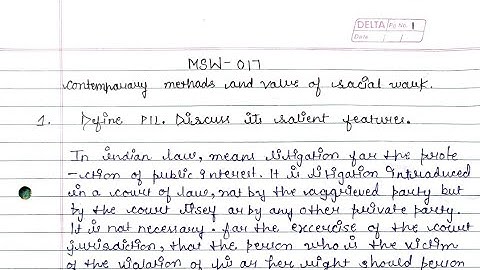 DELTA Pg No. 1
Date / /
MSW-017
contemporary methods and value of social work.
1. Define PIL. Discuss its salient features.
In indian law, meant litigation for the prote
-ction of public interest. It is litigation introduced
in a court of law, not by the aggrieved party but
by the court itself or by any other private party.
It is not necessary. for the excercise of the court
jurisdiction, that the person who is the victim
of the violation of his or her right should person